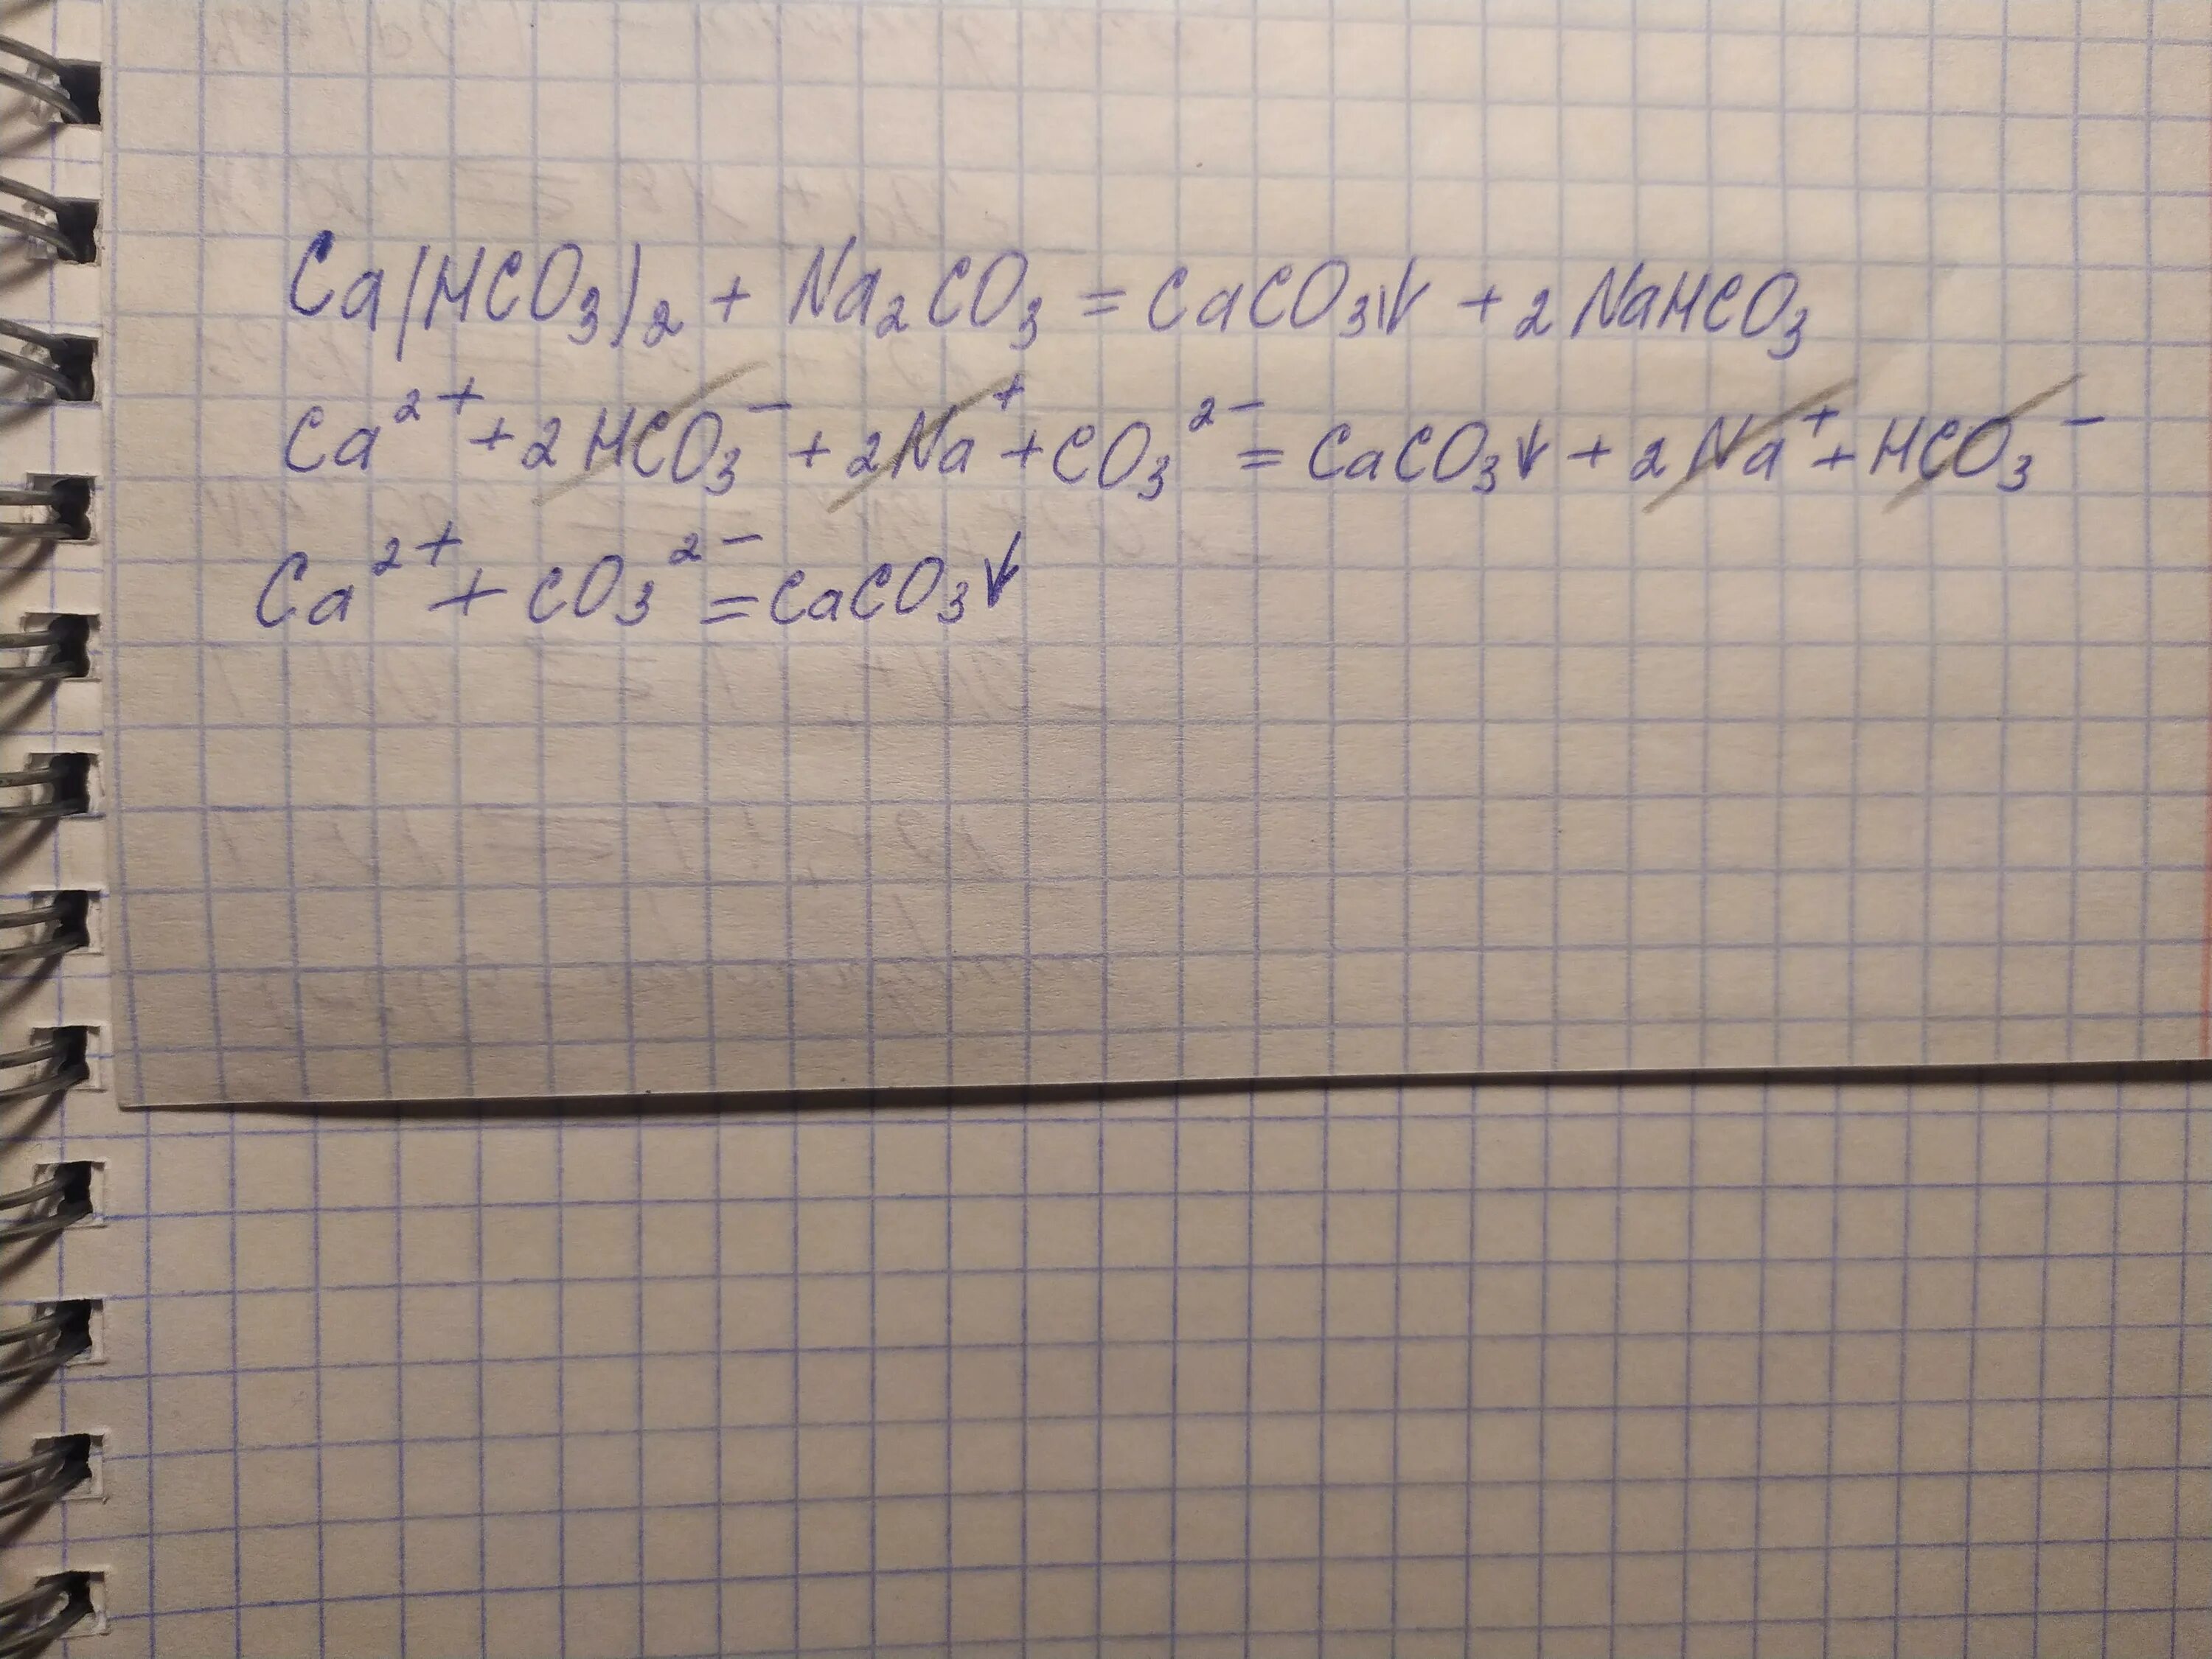 Ca(HCO₃)₂ + Na₂CO₃ = CaCO₃↓ + 2NaHCO₃
Ca²⁺ + 2HCO₃⁻ + 2Na⁺ + CO₃²⁻ = CaCO₃↓ + 2Na⁺ + HCO₃⁻
Ca²⁺ + CO₃²⁻ = CaCO₃↓